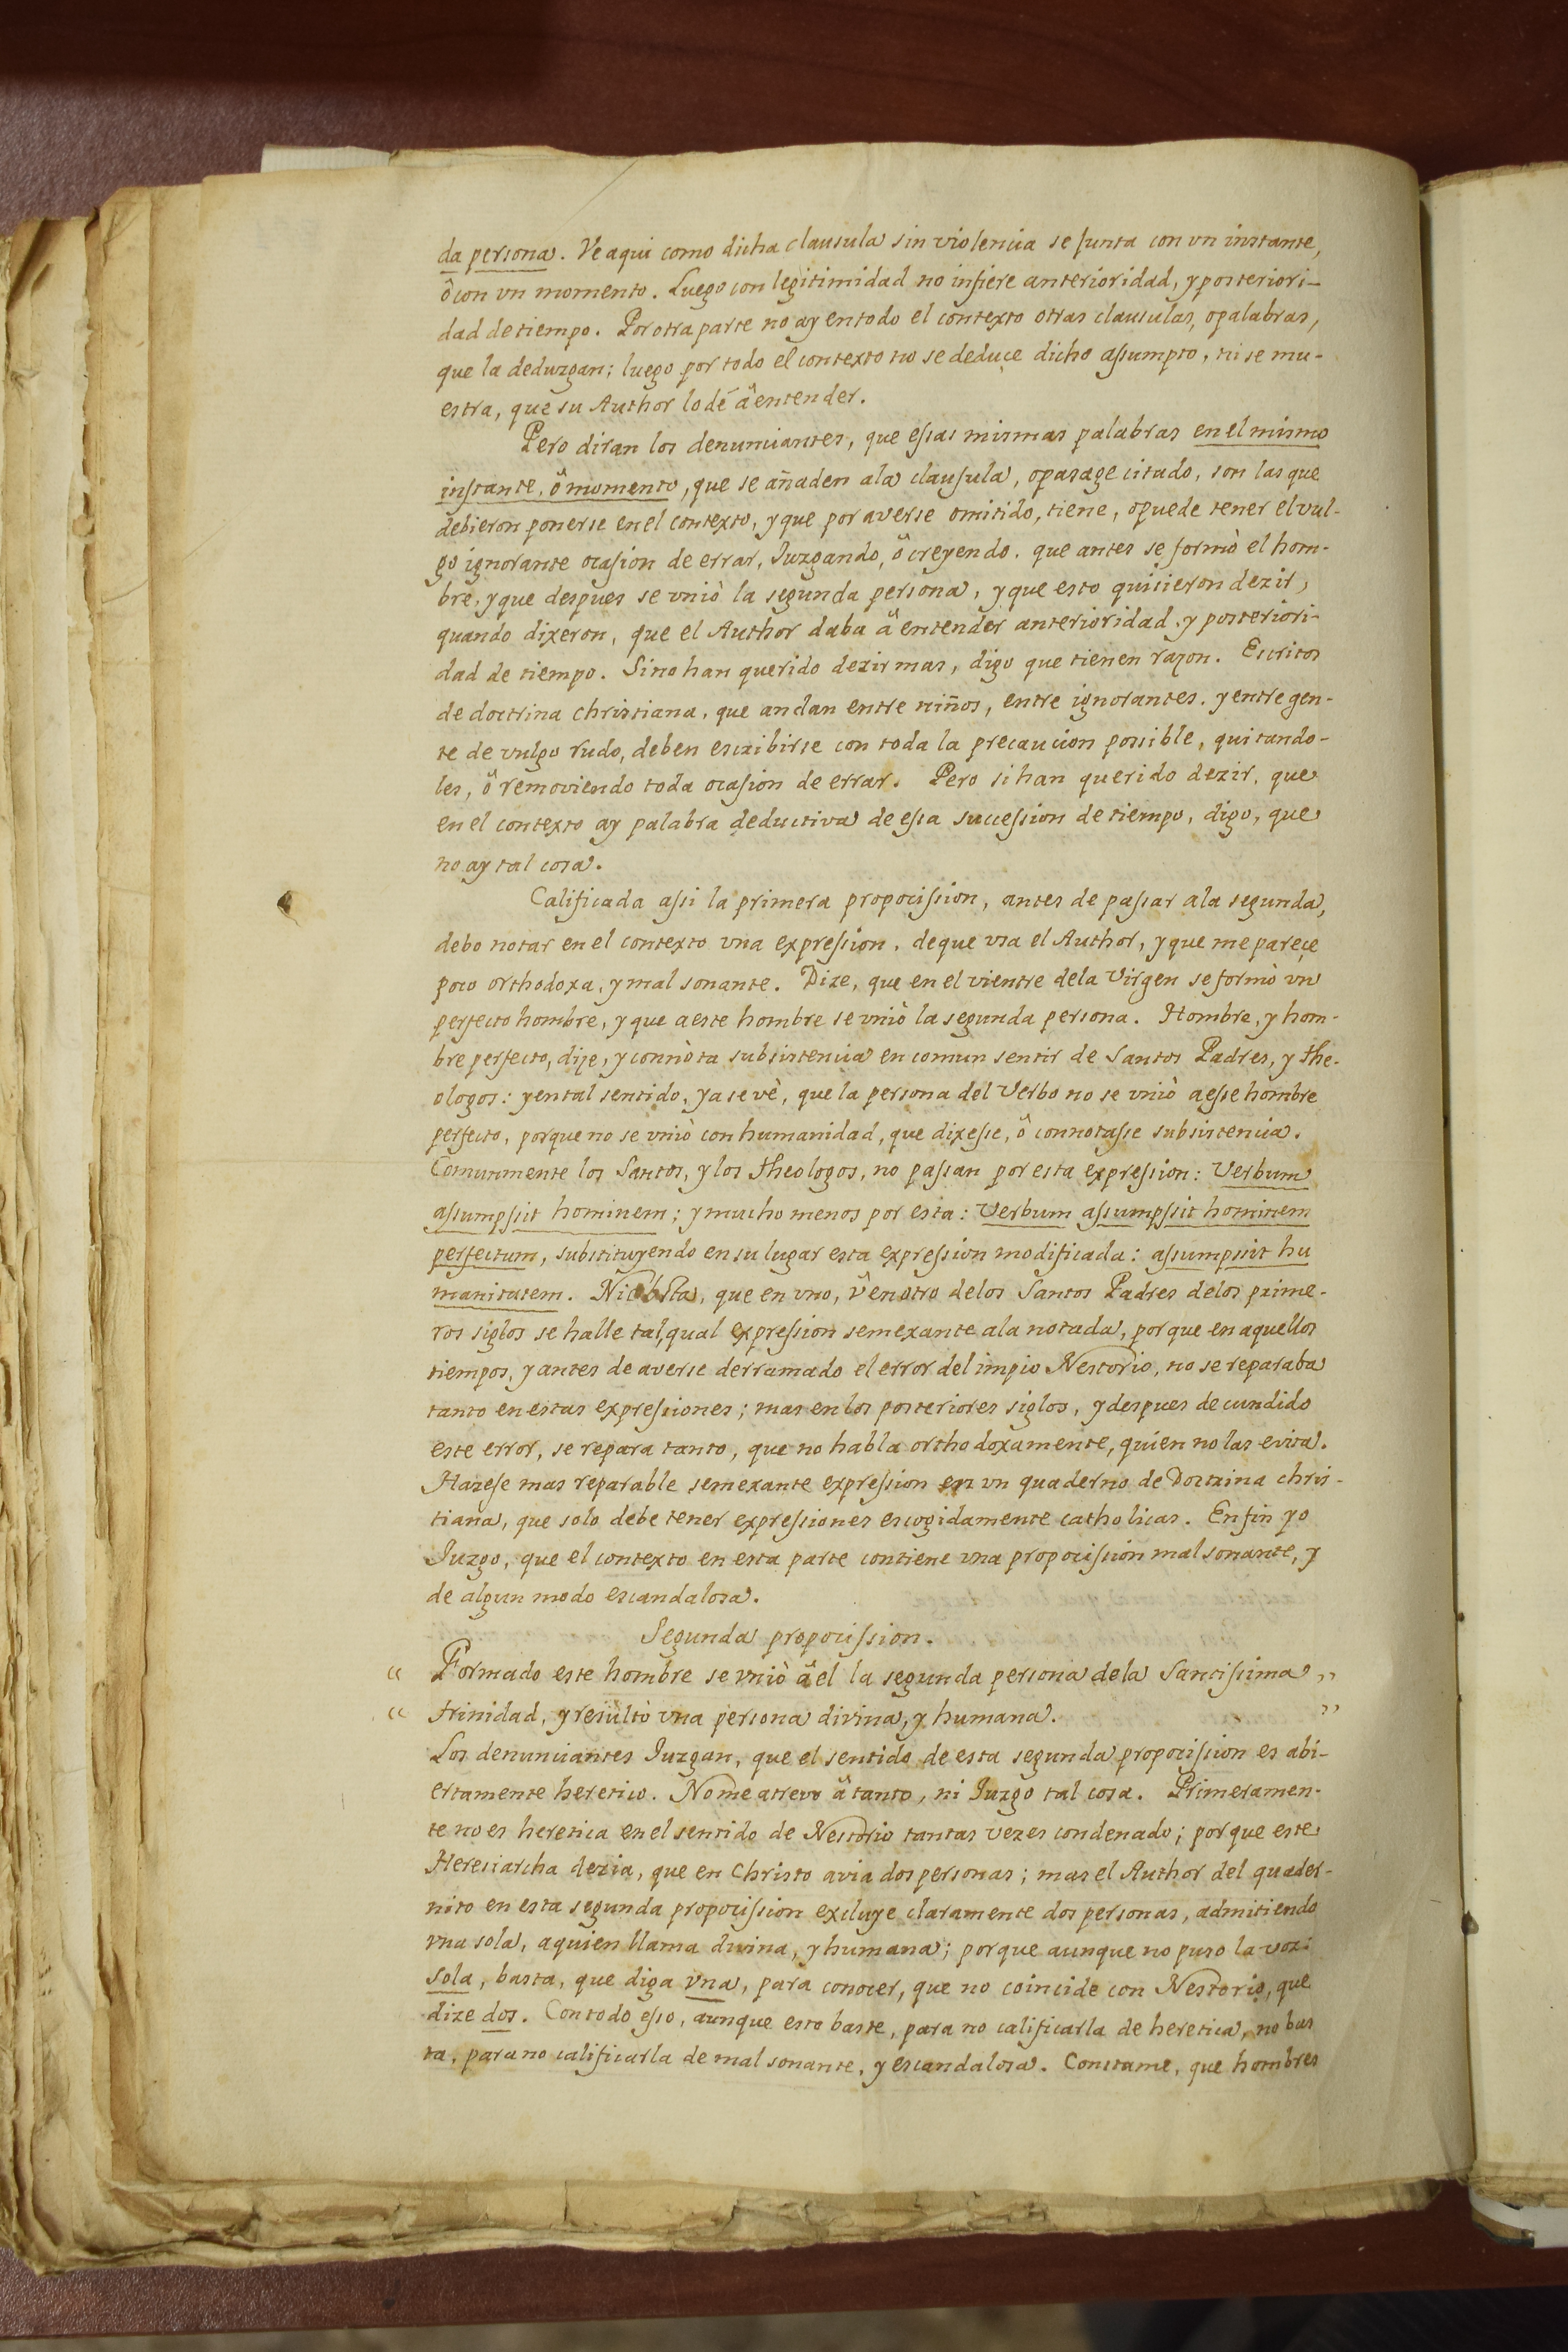 da persona. Ve aqui como dicha clausula sin violencia se junta con vn instante,
ô con vn momento. Luego con legitimidad no infiere anterioridad, y posteriori-
dad de tiempo. Por otra parte no ay en todo el contexto otras clausulas, o palabras,
que la deduzgan; luego por todo el contexto no se deduçe dicho assumpto, ni se mu-
estra, que su Author lo dé â entender.
Pero diran los denunciantes, que essas mismas palabras en el mismo
instante, ô momento, que se añaden a la clausula, o pasage citado, son las que
debieron ponerse en el contexto, y que por averse omitido, tiene, o puede tener el vul-
go ignorante ocasion de errar, Iuzgando, ô creyendo, que antes se formò el hom-
bre, y que despues se vniò la segunda persona, y que esto quisieron dezir,
quando dixeron, que el Author daba â entender anterioridad, y posteriori-
dad de tiempo. Si no han querido dezir mas, digo que tienen razon. Escritos
de doctrina christiana, que andan entre niños, entre ignorantes, y entre gen-
te de vulgo rudo, deben escribirse con toda la precaucion possible, quitando-
les, ô removiendo toda ocasion de errar. Pero si han querido dezir, que
en el contexto ay palabra deductiva de essa succession de tiempo, digo, que
no ay tal cosa.
Calificada assi la primera propocission, antes de passar a la segunda,
debo notar en el contexto vna expression, de que vsa el Author, y que me pareçe
poco orthodoxa, y mal sonante. Dize, que en el vientre de la Virgen se formò vn
perfecto hombre, y que a este hombre se vniò la segunda persona. Hombre, y hom-
bre perfecto, dize, y connòta subsistencia en comun sentir de Santos Padres, y the-
ologos: y en tal sentido, ya se vè, que la persona del Verbo no se vniò a esse hombre
perfecto, porque no se vniò con humanidad, que dixesse, ô connotasse subsistencia.
Comunmente los Santos, y los theologos, no passan por esta expression: Verbum
assumpsit hominem; y mucho menos por esta: Verbum assumpsit hominem
perfectum, substituyendo en su lugar esta expression modificada: assumpsit hu
manitatem. Ni obsta, que en vno, û en otro de los Santos Padres de los prime-
ros siglos se halle tal, qual expression semexante a la notada, porque en aquellos
tiempos, y antes de averse derramado el error del impio Nestorio, no se reparaba
tanto en estas expressiones; mas en los posteriores siglos, y despues de cundido
este error, se repara tanto, que no habla orthodoxamente, quien no las evita.
Hazese mas reparable semexante expression en vn quaderno de Doctrina chris-
tiana, que solo debe tener expressiones escogidamente catholicas. En fin yo
Iuzgo, que el contexto en esta parte contiene vna propocission mal sonante, y
de algun modo escandalosa.
Segunda propocission.
“ Formado este hombre se vniò â el la segunda persona de la Santissima ”
“ trinidad, y resultò vna persona divina, y humana. ”
Los denunciantes Iuzgan, que el sentido de esta segunda propocission es abi-
ertamente heretico. No me atrevo â tanto, ni Iuzgo tal cosa. Primeramen-
te no es heretica en el sentido de Nestorio tantas vezes condenado; porque este
Heresiarcha dezia, que en Christo avia dos personas; mas el Author del quader-
nito en esta segunda propocission excluye claramente dos personas, admitiendo
vna sola, a quien llama divina, y humana; porque aunque no puso la voz:
sola, basta, que diga vna, para conocer, que no coincide con Nestorio, que
dize dos. Con todo esso, aunque esto baste, para no calificarla de heretica, no bas
ta, para no calificarla de mal sonante, y escandalosa. Constame, que hombres